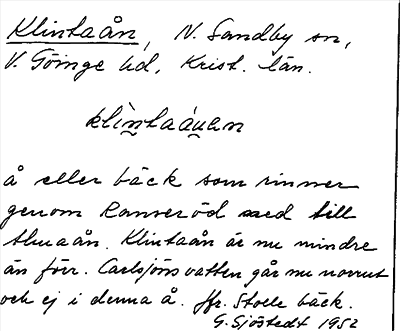 Klintaån, N. Sandby sn,
V. Göinge hd, Krist. län.
klìntaáuan
å eller bäck som rinner
genom Ranseröd ned till
Almaån. Klintaån är nu mindre
än förr. Carlsjöns vatten går nu norrut
och ej i denna å. Jfr. Stoele bäck.
G. Sjöstedt 1952